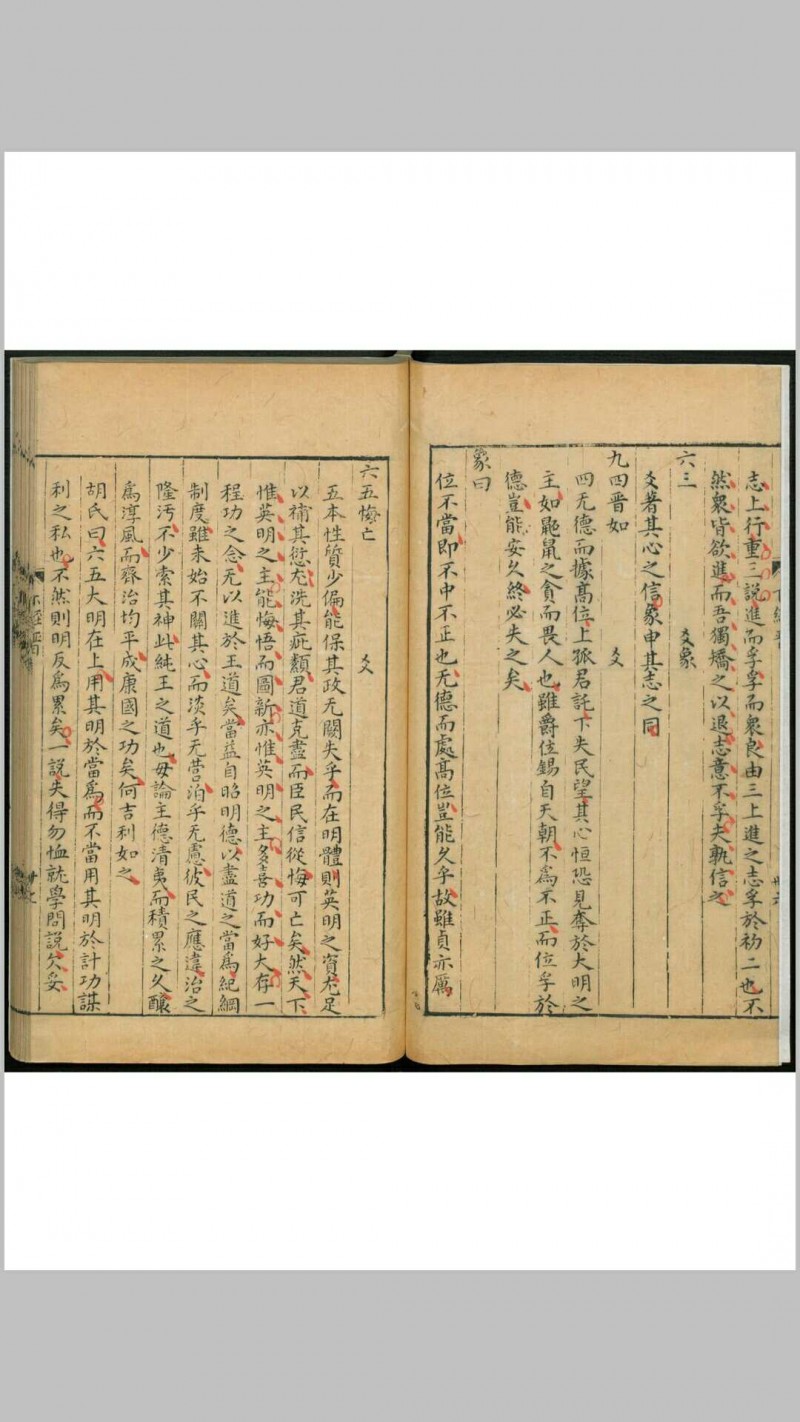 志上行重三說進而孚孚而衆良由三上進之志孚於初二也不
然衆皆欲進而吾獨矯之以退志意不孚夫孰信之
六三
爻象
爻著其心之信象申其志之同
九四晋如
爻
四无德而據髙位上孤君託下失民望其心恒恐見奪於大明之
主如鼫鼠之貪而畏人也雖爵位錫自天朝不爲不正而位孚於
德豈能安久終必失之矣
象曰
位不當即不中不正也无德而處髙位豈能久乎故雖貞亦厲
六五悔亡
爻
五本性質少偏能保其政无闕失乎而在明體則英明之資尤足
以補其愆充洗其疵纇君道克盡而臣民信從悔可亡矣然天下
惟英明之主能悔悟而圖新亦惟英明之主多喜功而好大存一
程功之念无以進於王道矣當益自昭明德以盡道之當爲紀綱
制度雖未始不關其心而淡乎无营泊乎无慮彼民之應違治之
隆汚不少索其神此純王之道也毋論主德清夷而積累之久釀
爲淳風而齊治均平成康國之功矣何吉利如之
胡氏曰六五大明在上用其明於當爲而不當用其明於計功謀
利之私也不然則明反爲累矣一說失得勿恤就學問說欠妥